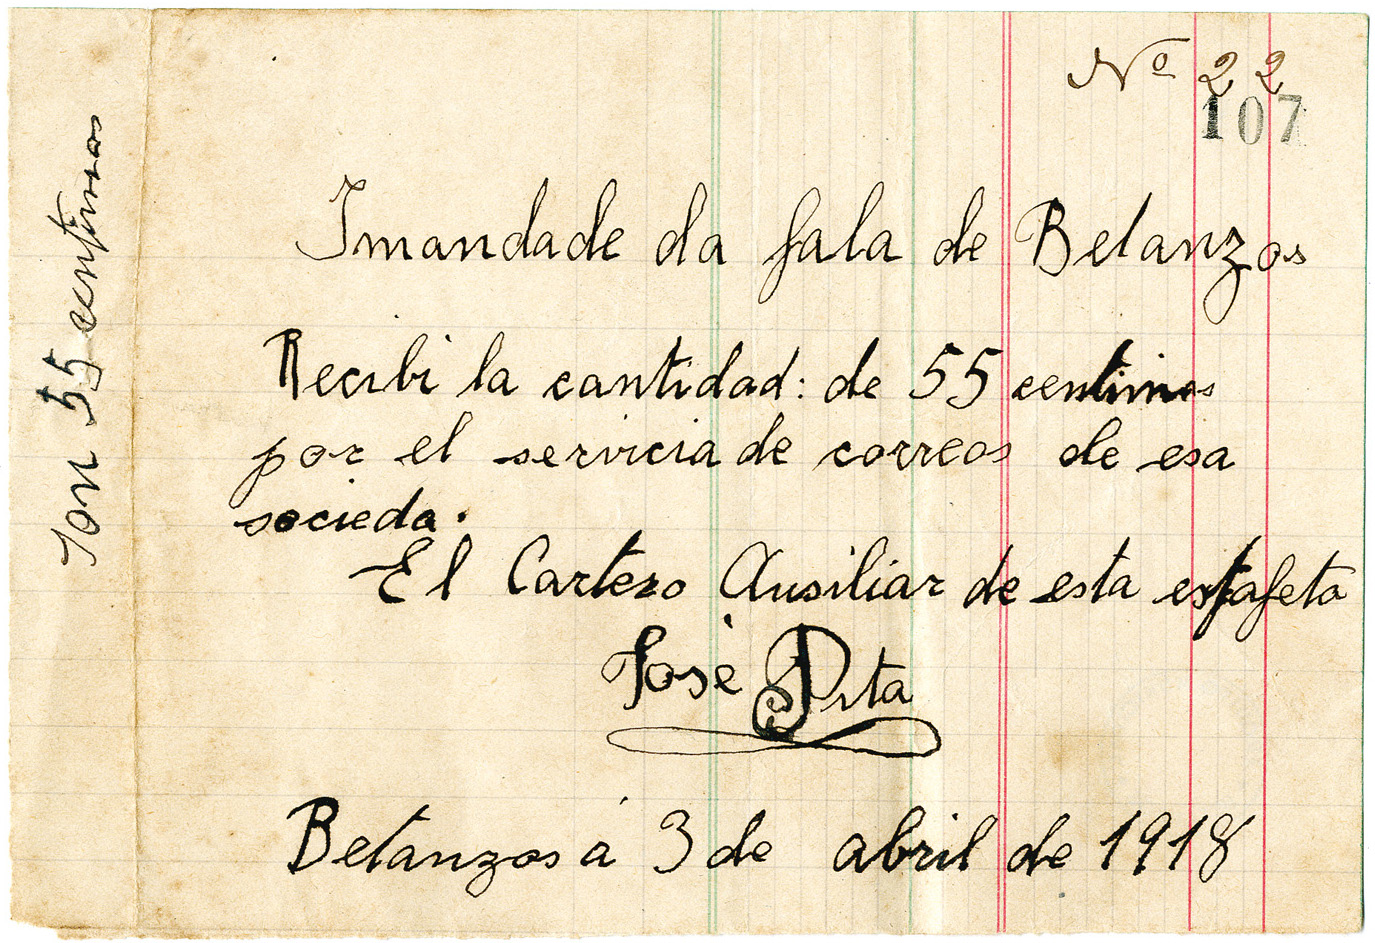 Nº 22
107
Imandade da fala de Betanzos
Recibi la cantidad: de 55 centimos
por el servicia de correos de esa
socieda.
El Cartero Ausiliar de esta estafeta
José Pita
Betanzos á 3 de abril de 1918
Son 55 centimos